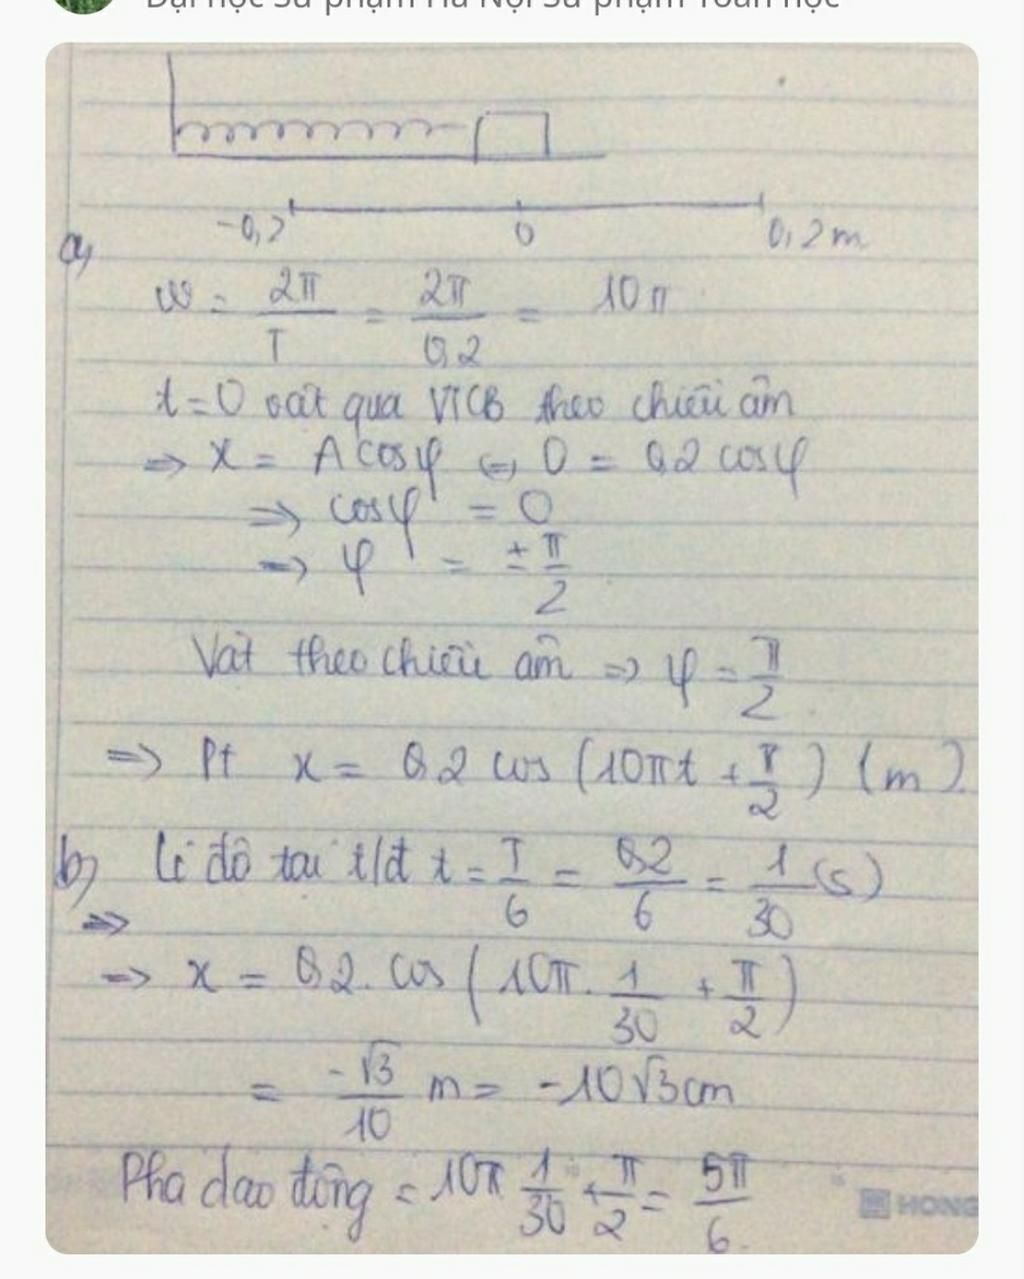 Đại học Sư phạm Hà Nội Sư phạm Toán học
-0,2 0 0,2m
a,
ω = 2π/T = 2π/0,2 = 10π
t=0 vật qua VTCB theo chiều âm
=> x = Acosφ <=> 0 = 0,2 cosφ
=> cosφ = 0
=> φ = ± π/2
Vật theo chiều âm => φ = π/2
=> Pt x = 0,2 cos (10πt + π/2) (m)
b) Li độ tại t/đ t = T/6 = 0,2/6 = 1/30 (s)
=>
=> x = 0,2. cos (10π. 1/30 + π/2)
= -√3/10 m = -10√3cm
Pha dao động = 10π 1/30 + π/2 = 5π/6.
HONG